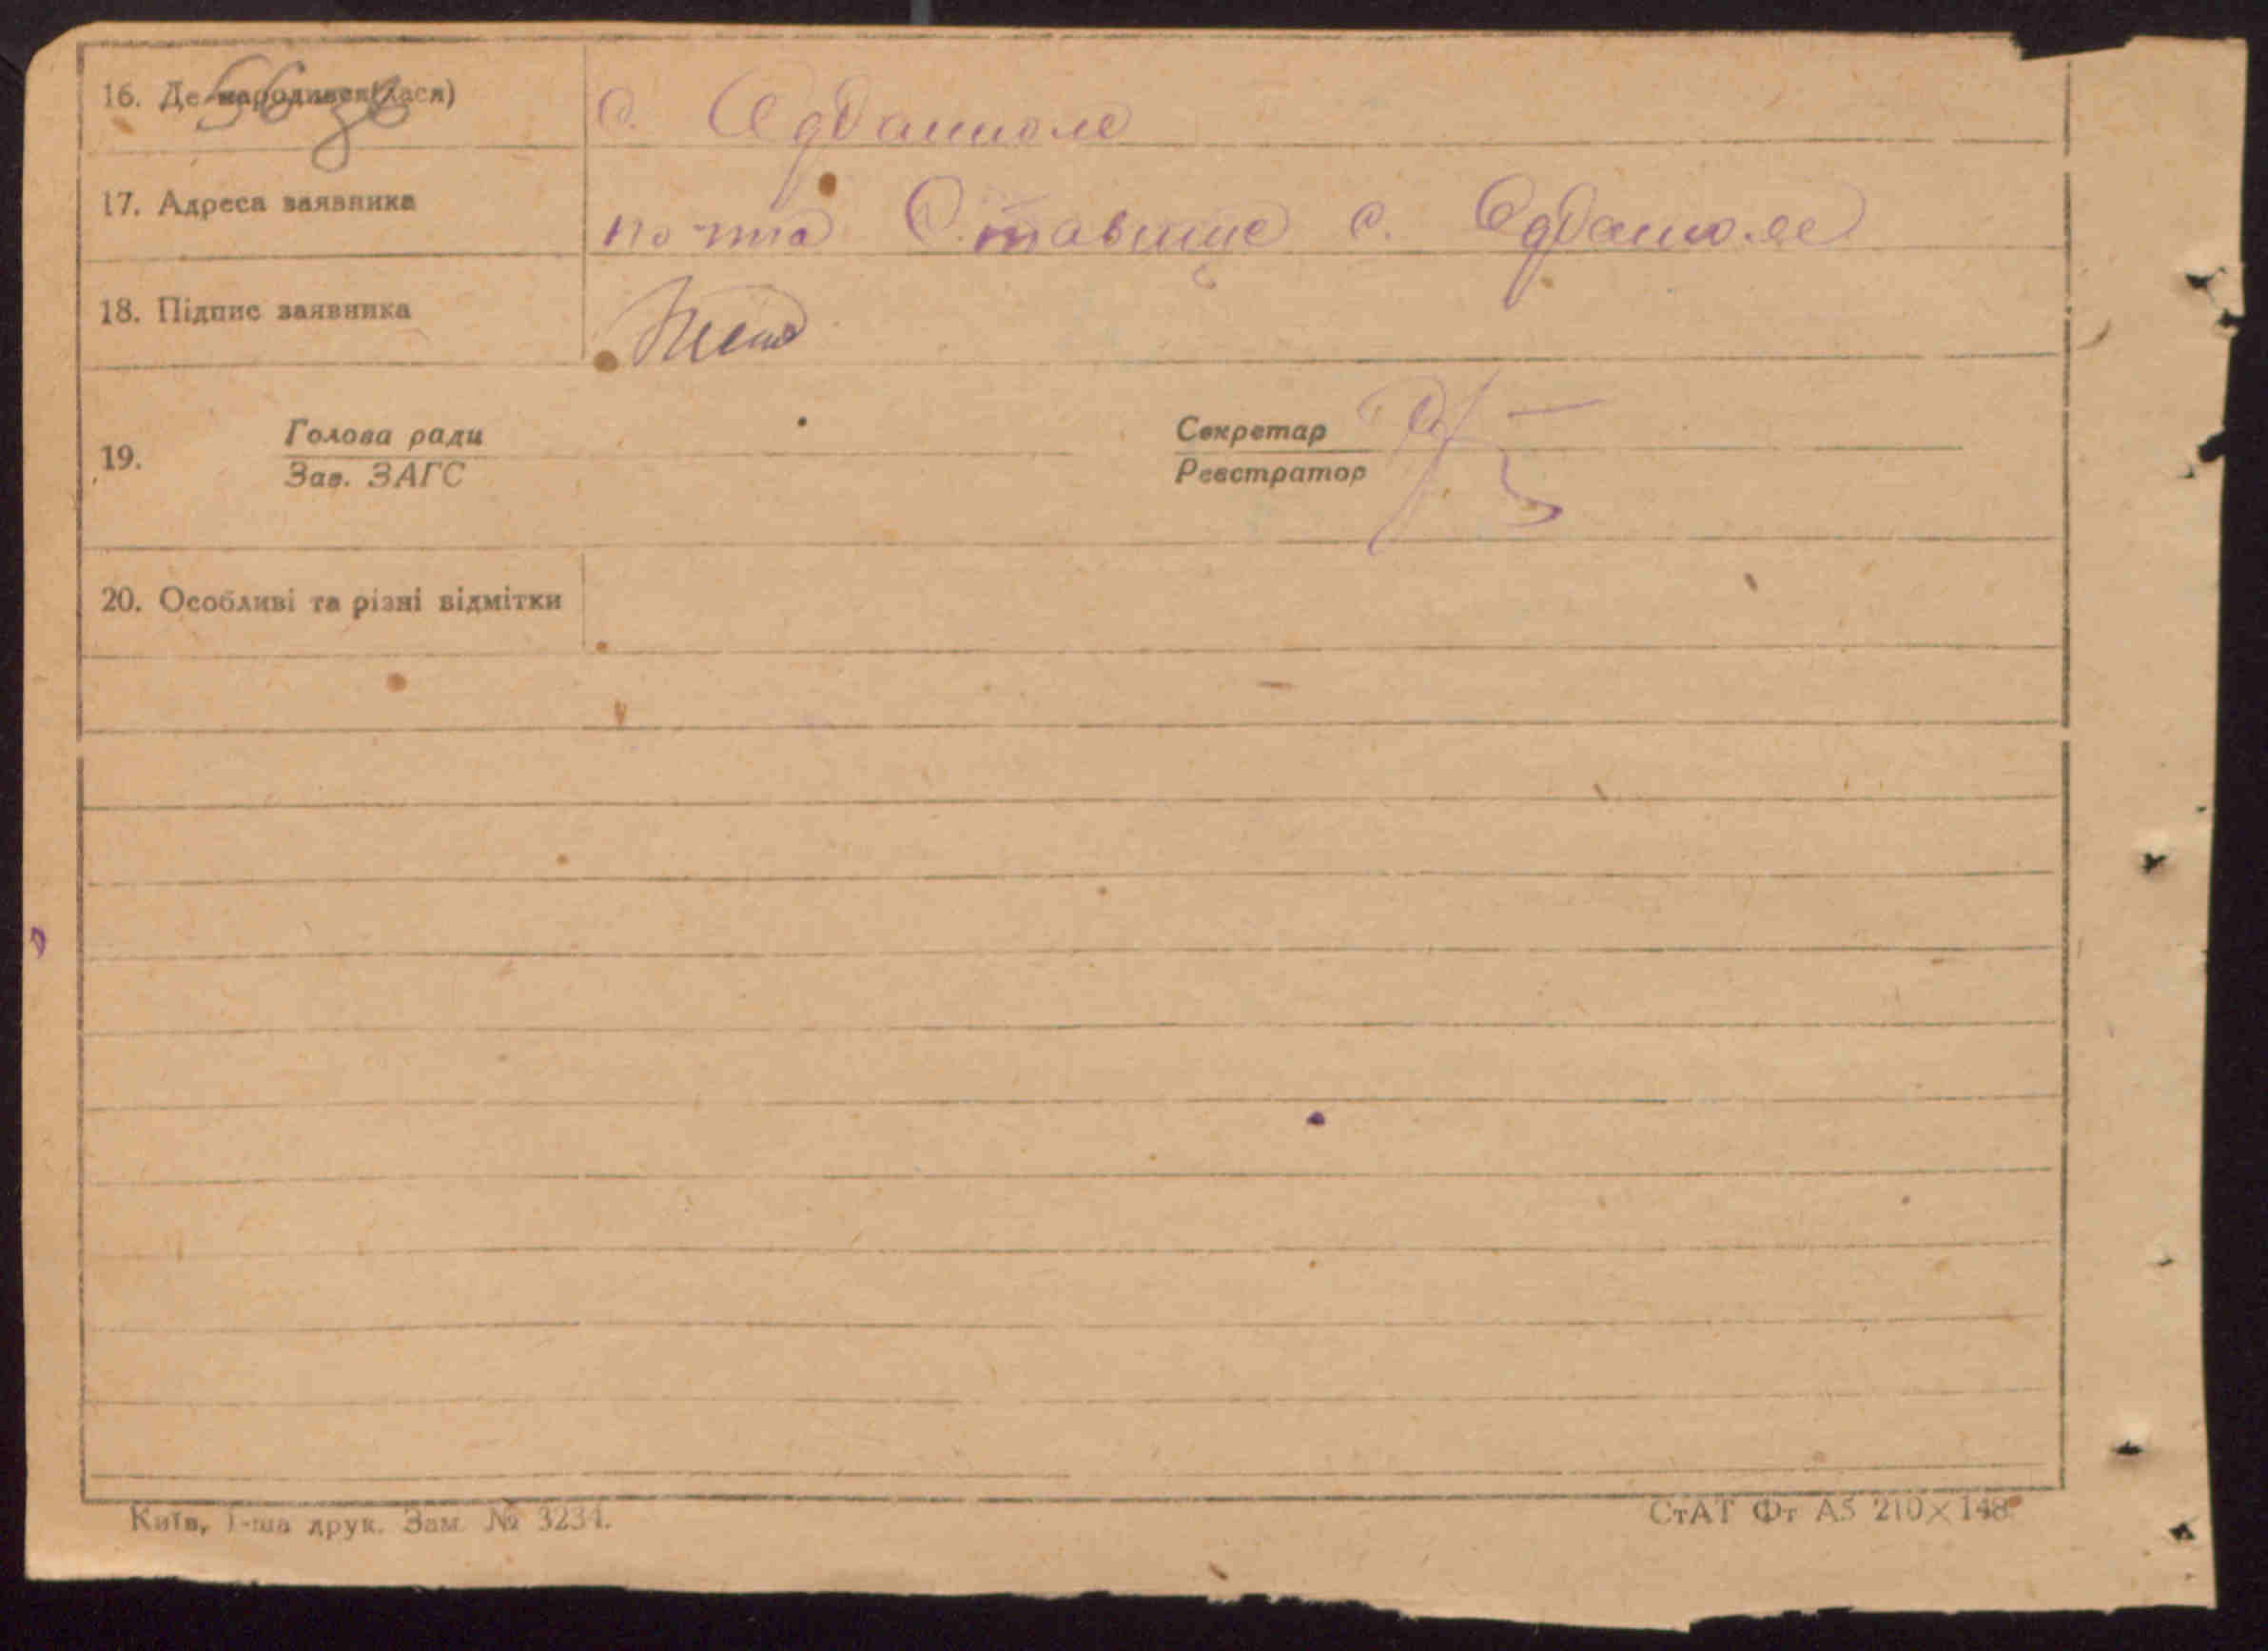 16. Де народився(лася) с. Адамполе
17. Адреса заявника почта Ставище с. Адамполе
18. Підпис заявника
19. Голова ради Секретар
Зав. ЗАГС Реєстратор
20. Особливі та різні відмітки
Київ, 1-ша друк. Зам. № 3234.
СтАТ Фт А5 210×148